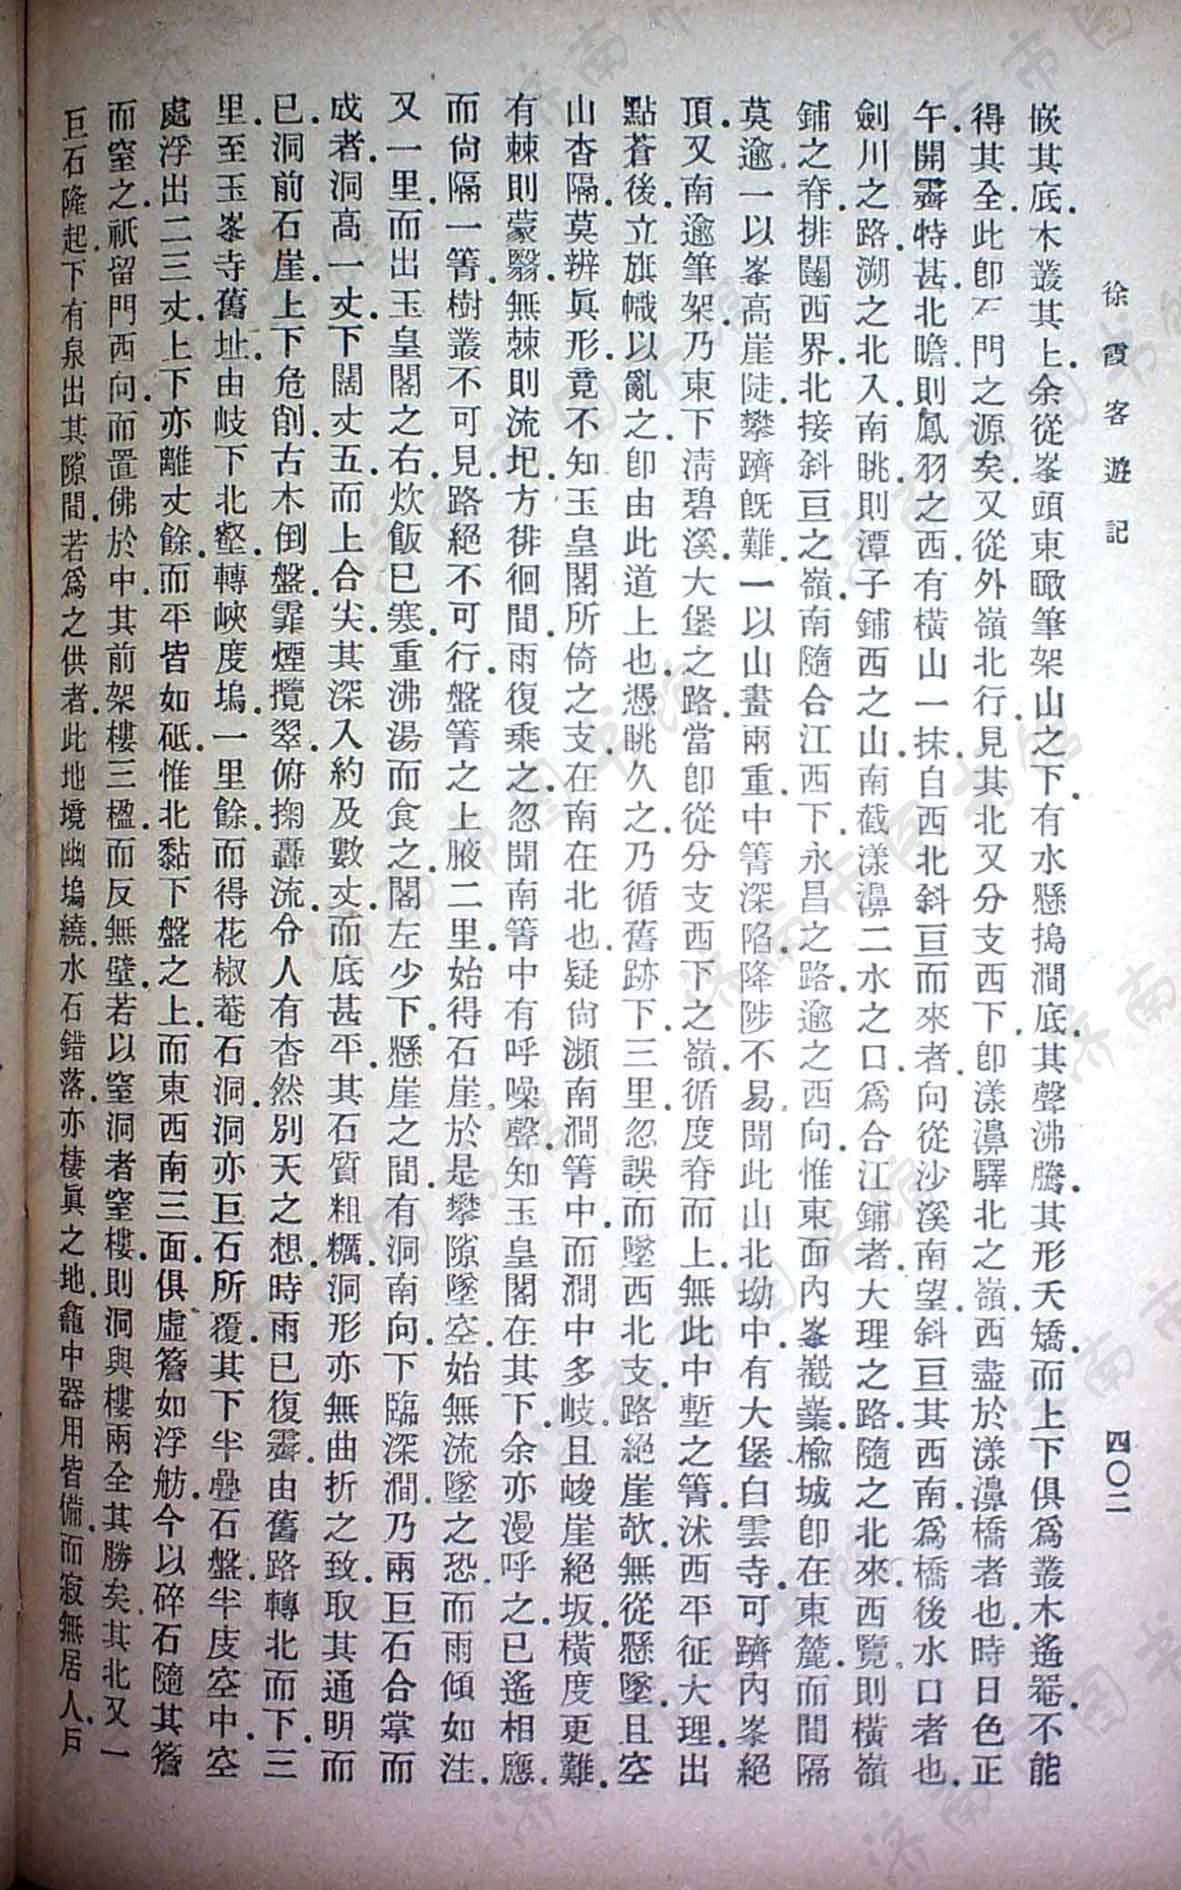 徐霞客遊記
四〇二
嵌其底．木叢其上．余從峯頭東瞰筆架山之下．有水懸搗澗底．其聲沸騰．其形夭矯．而上下俱爲叢木遙罨．不能
得其全．此卽石門之源矣．又從外嶺北行．見其北又分支西下．卽漾濞驛北之嶺．西盡於漾濞橋者也．時日色正
午．開霽特甚．北瞻．則鳳羽之西．有橫山一抹．自西北斜亘而來者．向從沙溪南望．斜亘其西南．爲橋後水口者也．
劍川之路．溯之北入．南眺．則潭子鋪西之山．南截漾濞二水之口．爲合江鋪者．大理之路．隨之北來．西覽．則橫嶺
鋪之脊．排闥西界．北接斜亘之嶺．南隨合江西下．永昌之路．逾之西向．惟東面內峯巀嶪．榆城卽在東麓．而間隔
莫逾．一以峯高崖陡．攀躋旣難．一以山畫兩重．中箐深陷．降陟不易．聞此山北坳中．有大堡白雲寺．可躋內峯絕
頂．又南逾筆架．乃東下淸碧溪．大堡之路．當卽從分支西下之嶺．循度脊而上．無此中塹之箐．沭西平征大理．出
點蒼後．立旗幟以亂之．卽由此道上也．憑眺久之．乃循舊跡下．三里．忽誤而墜西北支．路絕崖欹．無從懸墜．且空
山杳隔．莫辨眞形．竟不知玉皇閣所倚之支．在南在北也．疑尙瀕南澗箐中．而澗中多岐．且峻崖絕坂．橫度更難．
有棘則蒙翳．無棘則流圮．方徘徊間．雨復乘之．忽聞南箐中有呼噪聲．知玉皇閣在其下．余亦漫呼之．已遙相應．
而尙隔一箐．樹叢不可見．路絕不可行．盤箐之上腋二里．始得石崖．於是攀隙墜空．始無流墜之恐．而雨傾如注．
又一里．而出玉皇閣之右．炊飯已寒．重沸湯而食之．閣左少下．懸崖之間．有洞南向．下臨深澗．乃兩巨石合掌而
成者．洞高一丈．下闊丈五．而上合尖．其深入約及數丈．而底甚平．其石質粗糲．洞形亦無曲折之致．取其通明而
已．洞前石崖．上下危削．古木倒盤．霏煙攬翠．俯掬轟流．令人有杳然別天之想．時雨已復霽．由舊路轉北而下．三
里．至玉峯寺舊址．由岐下北壑．轉峽度塢．一里餘．而得花椒菴石洞．洞亦巨石所覆．其下半疊石盤．半庋空中．空
處浮出二三丈．上下亦離丈餘．而平皆如砥．惟北黏下盤之上．而東西南三面．俱虛簷如浮舫．今以碎石隨其簷
而窒之．祇留門西向．而置佛於中．其前架樓三楹．而反無壁．若以窒洞者窒樓．則洞與樓兩全其勝矣．其北又一
巨石隆起．下有泉出其隙間．若爲之供者．此地境幽塢繞．水石錯落．亦棲眞之地．龕中器用皆備．而寂無居人．戶